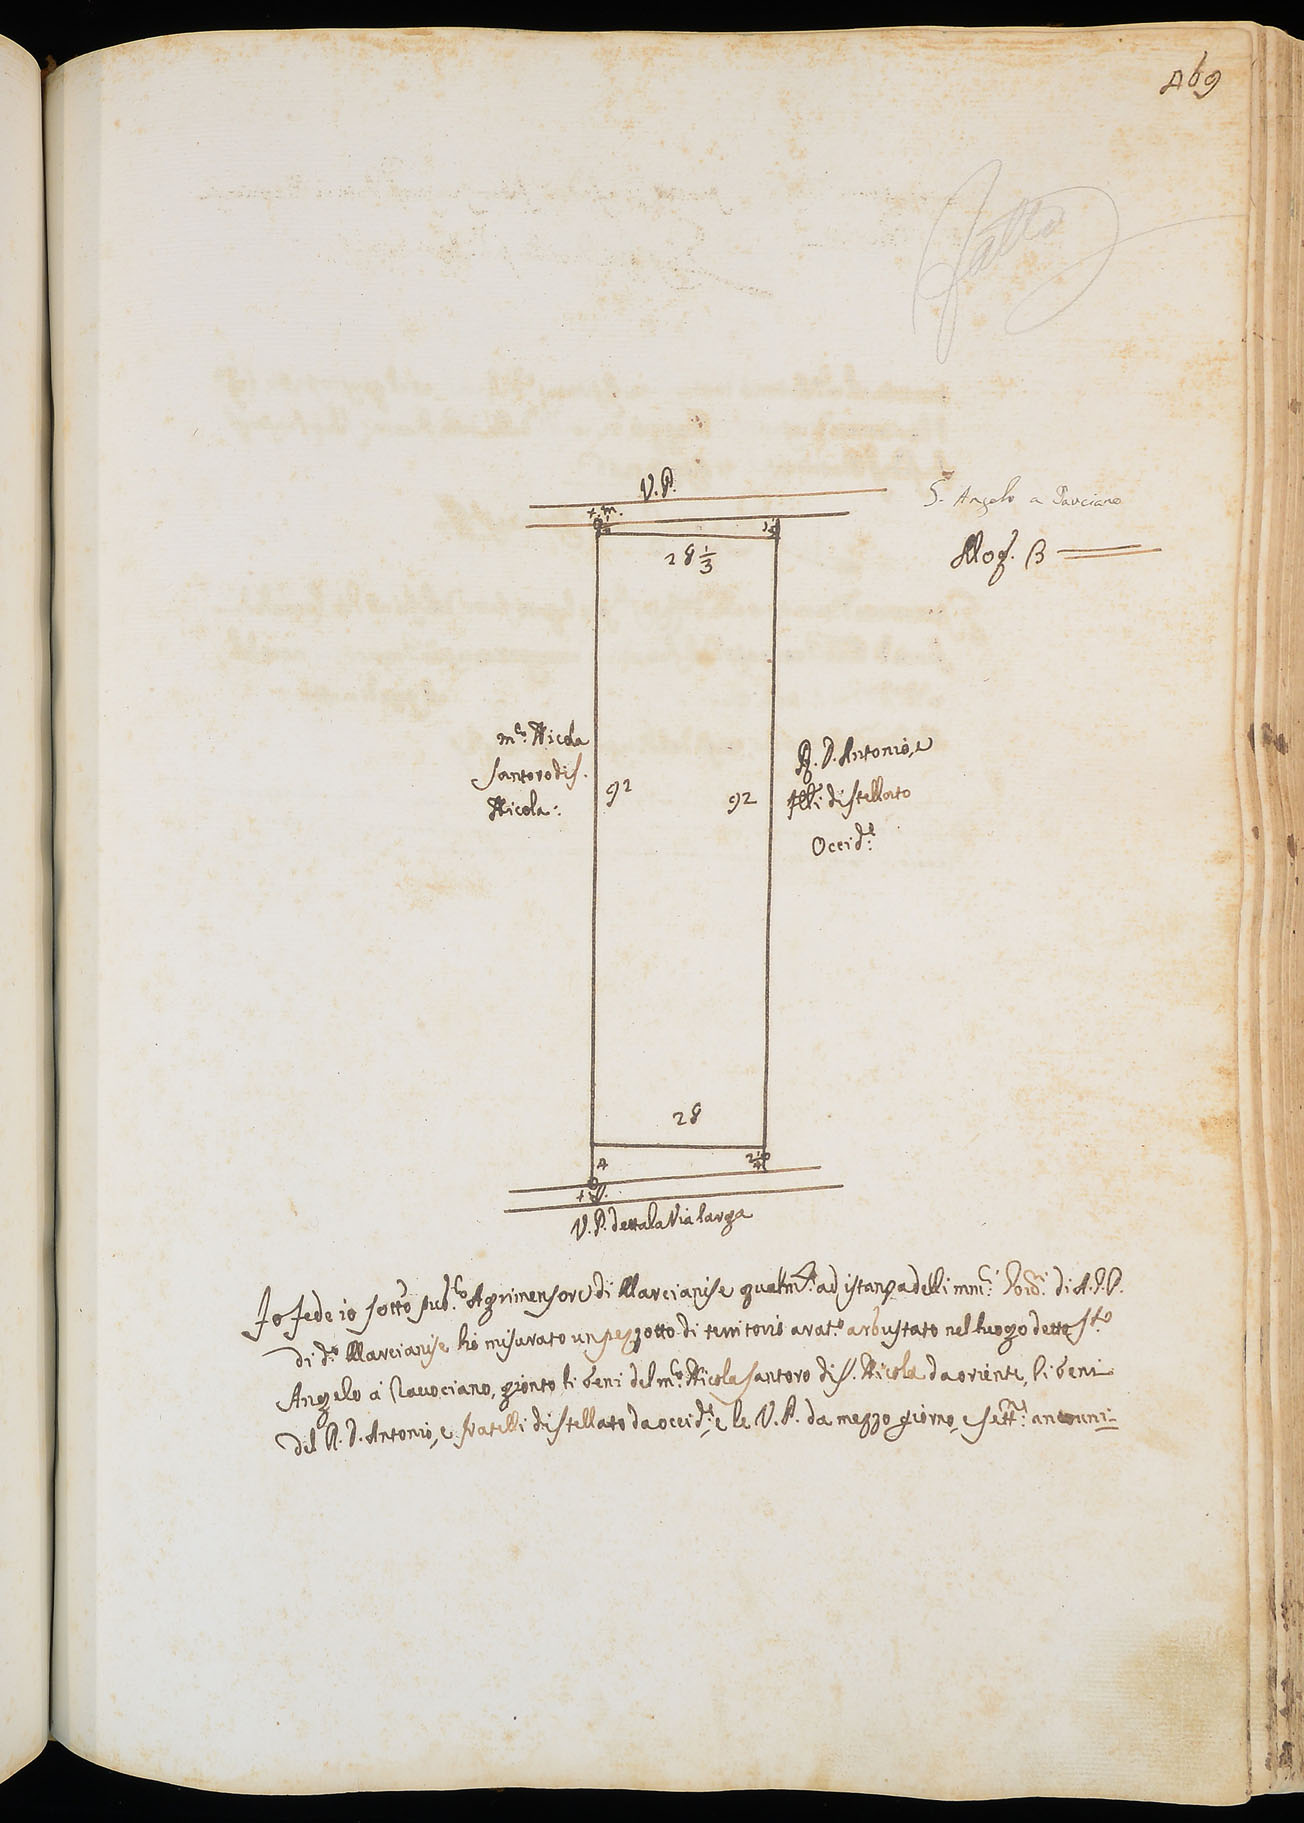 469
Fatto
V. P.
S. Angelo a
Mog. B
+ m.
28 1/3
m.co Nicola
Santoro di S.
Nicola:
92
92
R. D. Antonio, e
flli: di Stellato
Occid.e:
28
4
2 1/4
+ S.
V. P. detta la Via larga
Io Fede io sotto pub.co Agrimensore di Marcianise qualm.te ad istanza delli mm.ci di A. G. P.
di d.o Marcianise hò misurato un pezzotto di territorio arat.o arbustato nel luogo detto S.to
Angelo à gionto li beni del m.co Nicola Santoro di S. Nicola da oriente, li beni
del R. D. Antonio, e fratelli di Stellato da occid.e: e le V. P. da mezzo giorno, e sett.e: